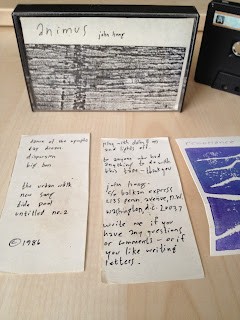 animus
john hney
dance of the apostle
day dream
dispersion
big ben
the urban walk
new song
tide pool
untitled no. 2
© 1986
play with dolby on
and lights off.
to anyone who had
anything to do with
this tape - thank you
john
c/o balkan express
2135 penn. avenue, N.W.
washington, d.c. 20037
write me if you
have any questions
or comments - or if
you like writing
letters.